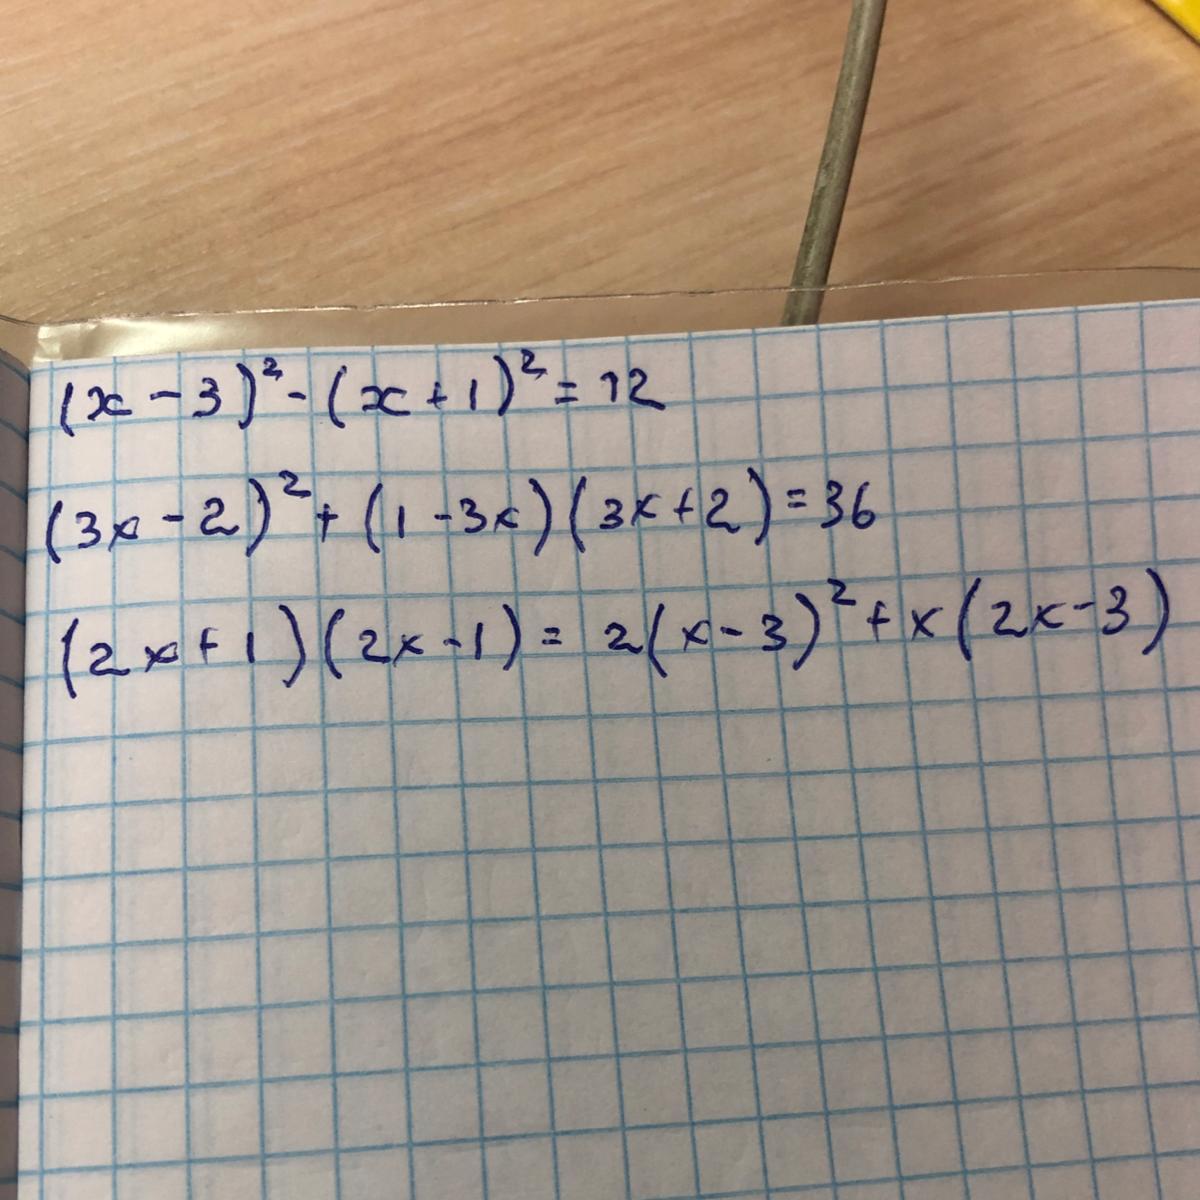 (x-3)²-(x+1)²=12
(3x-2)²+(1-3x)(3x+2)=36
(2x+1)(2x-1)=2(x-3)²+x(2x-3)